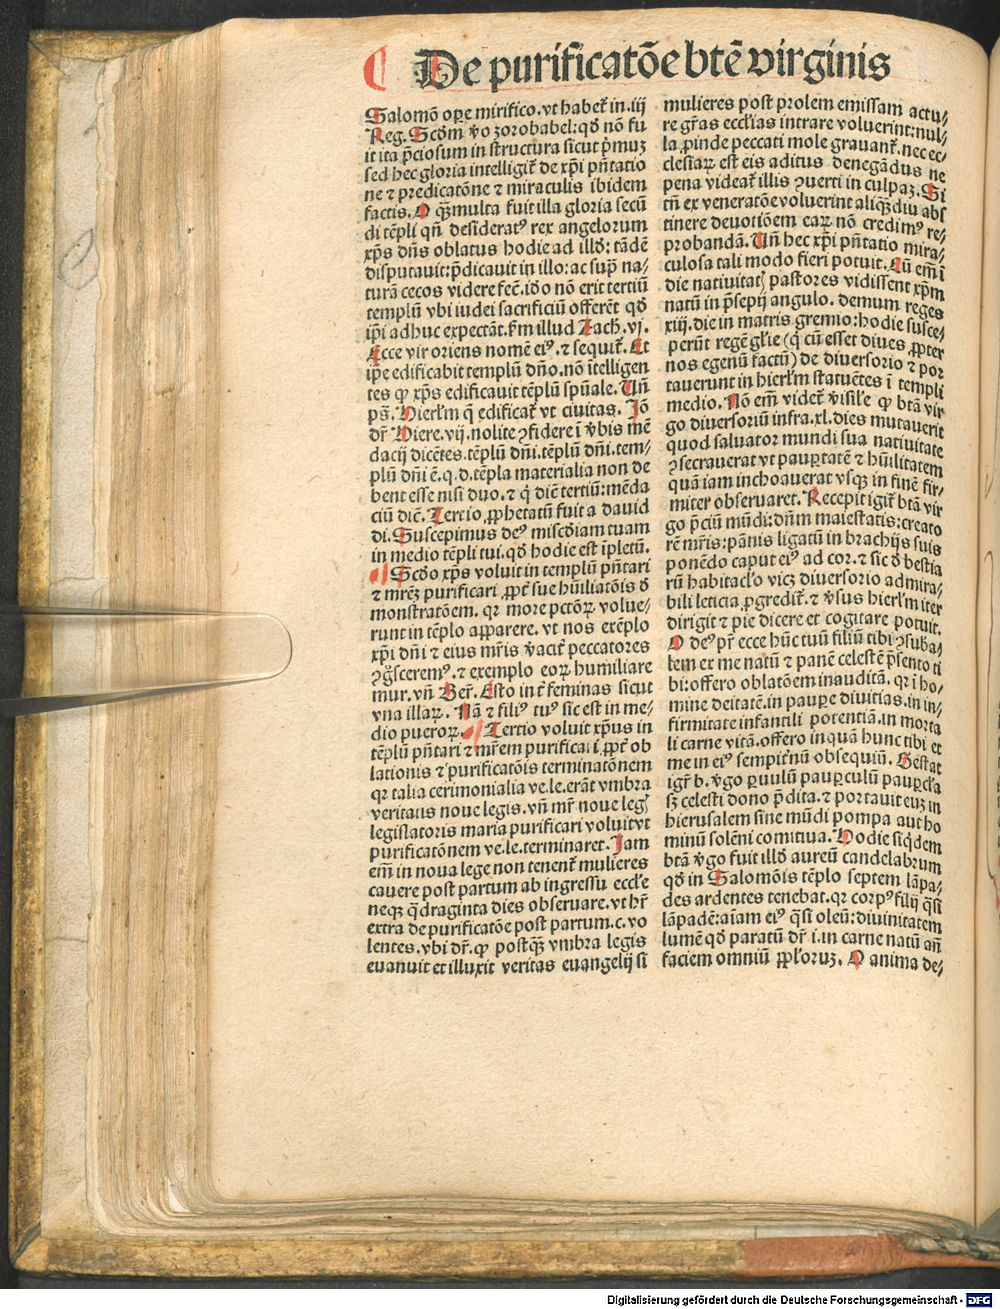 De purificatōe btē virginis
Salomō oꝑe mirifico.vt habet᷑ in.iij
Reg. Scďm v̊o zorobabel:qđ nō fu
it ita p̄ciosum in structura sicut pꝛimuꝫ
sed hec gloria intelligit᷑ de xp̄i pñtatio
ne ⁊ predicatōne ⁊ miraculis ibidem
factis. O qꝫmulta fuit illa gloria secū
di tēpli qñ desideratꝰ rex angelorum
xp̄s dn̄s oblatus hodie ad illđ: tādē
disputauit:p̄dicauit in illo:ac supͣ na⸗
turā cecos videre fecͭ.iđo nō erit tertiū
templū vbi iudei sacrificiū offerēt qđ
ip̄i adhuc expectāt.ẜm illud Zach.vj.
Ecce vir oriens nomē eiꝰ.⁊ sequit᷑. Et
ip̄e edificabit templū dn̄o.nō ītelligen
tes ꝙ xp̄s edificauit tēplū spūale. Un̄
ps̄. Hierlm̄ q̄ edificat᷑ vt ciuitas. Iō
dr̄ Hiere.vij.nolite ꝯfidere ī v̓bis mē
dacij dicētes.tēplū dn̄i.tēplū dn̄i.tem⸗
plū dn̄i ē.q.d.tēpla materialia non de
bent esse nisi duo.⁊ q̇ diē tertiū:mēda
ciū diē. Tertio ꝓphetatū fuit a dauid
di. Suscepimus deꝰ misc̄diam tuam
in medio tēpli tui.qđ hodie est īpletū.
Scđo xp̄s voluit in templū pñtari
⁊ mrēꝫ purificari ꝓpt᷑ sue hūiliatōis đ
monstratōem. qꝛ more pctōꝝ volue⸗
runt in tēplo apparere. vt nos exēplo
xp̄i dn̄i ⁊ eius mr̄is v̓acit᷑ peccatores
ꝯgͦsceremꝰ.⁊ exemplo eoꝝ humiliare
mur.vn̄ Ber̄. Esto int̓ feminas sicut
vna illaꝝ. Nā ⁊ filiꝰ tuꝰ sic est in me⸗
dio pueroꝝ. Tertio voluit xp̄us in
tēplū pñtari ⁊ mr̄em purificari ꝓpt᷑ ob
lationis ⁊ purificatōis terminatōnem
qꝛ talia cerimonialia ve.le.erāt vmbra
veritatis noue legis.vn̄ mr̄ noue leg̓
legislatoris maria purificari voluit vt
purificatōnem ve.le.terminaret. Iam
em̄ in noua lege non tenent᷑ mulieres
cauere post partum ab ingressu eccl̄e
neqꝫ q̄draginta dies obseruare.vt hr̄
extra de purificatōe post partum.c.vo
lentes.vbi dr̄.ꝙ postqꝫ vmbra legis
euanuit et illuxit veritas euangelij si
mulieres post prolem emissam actu⸗
re gr̄as eccl̄ias intrare voluerint:nul⸗
la ꝓinde peccati mole grauant᷑.nec ec⸗
clesiaꝝ est eis aditus denegādus ne
pena videat᷑ illis ꝯuerti in culpaꝫ. Si
tn̄ ex veneratōe voluerint aliqꝫdiu abs
tinere deuotiōem eaꝝ nō credimꝰ re⸗
probandā. Un̄ hec xp̄i pñtatio mira⸗
culosa tali modo fieri potuit. Cū em̄ ī
die natiuitat̓ pastores vidissent xp̄m
natū in p̄sepij angulo. demum reges
xiij.die in matris gremio:hodie susce⸗
perūt regē gl̄ie (q̇ cū esset diues ꝓpter
nos egenū factū) de diuersorio ⁊ por
tauerunt in hierlm̄ statuētes ī templi
medio. Nō em̄ videt᷑ v̓isil̄e ꝙ btā vir
go diuersoriū infra.xl.dies mutauerit
quod saluator mundi sua natiuitate
ꝯsecrauerat vt pauꝑtatē ⁊ hūilitatem
quā iam inchoauerat vsqꝫ in finē fir⸗
miter obseruaret. Recepit igit᷑ btā vir
go p̄ciū mūdi:dn̄m maiestatis:creato
rē mr̄is:pānis ligatū in brachijs suis
ponēdo caput eiꝰ ad cor.⁊ sic đ bestia
rū habitacl̄o vicꝫ diuersorio admira⸗
bili leticia ꝓgredit᷑.⁊ v̓sus hierlm̄ iter
dirigit ⁊ pie dicere et cogitare potuit.
O deꝰ pr̄ ecce hūc tuū filiū tibi ꝯsubā⸗
lem ex me natū ⁊ panē celestē p̄sento ti
bi:offero oblatōem inauditā. qꝛ ī ho⸗
mine deitatē.in pauꝑe diuitias.in in⸗
firmitate infantili potentiā.in morta
li carne vitā.offero inquā hunc tibi et
me in eiꝰ sempit̓nū obsequiū. Gestat
igr̄ b.v̓go paruulū pauꝑculū pauꝑcl̄a
sꝫ celesti dono p̄dita.⁊ portauit euꝫ in
hierusalem sine mūdi pompa aut ho
minū solēni comitiua. Hodie siq̇dem
btā v̓go fuit illđ aureū candelabrum
qđ in Salomōis tēplo septem lāpa⸗
des ardentes tenebat.qꝛ corpꝰ filij q̄si
lāpadē:aīam eiꝰ q̄si oleū:diuinitatem
lumē qđ paratū dr̄ i.in carne natū an̄
faciem omniū ppl̄oruꝫ. O anima de⸗
Digitalisierung gefördert durch die Deutsche Forschungsgemeinschaft - DFG